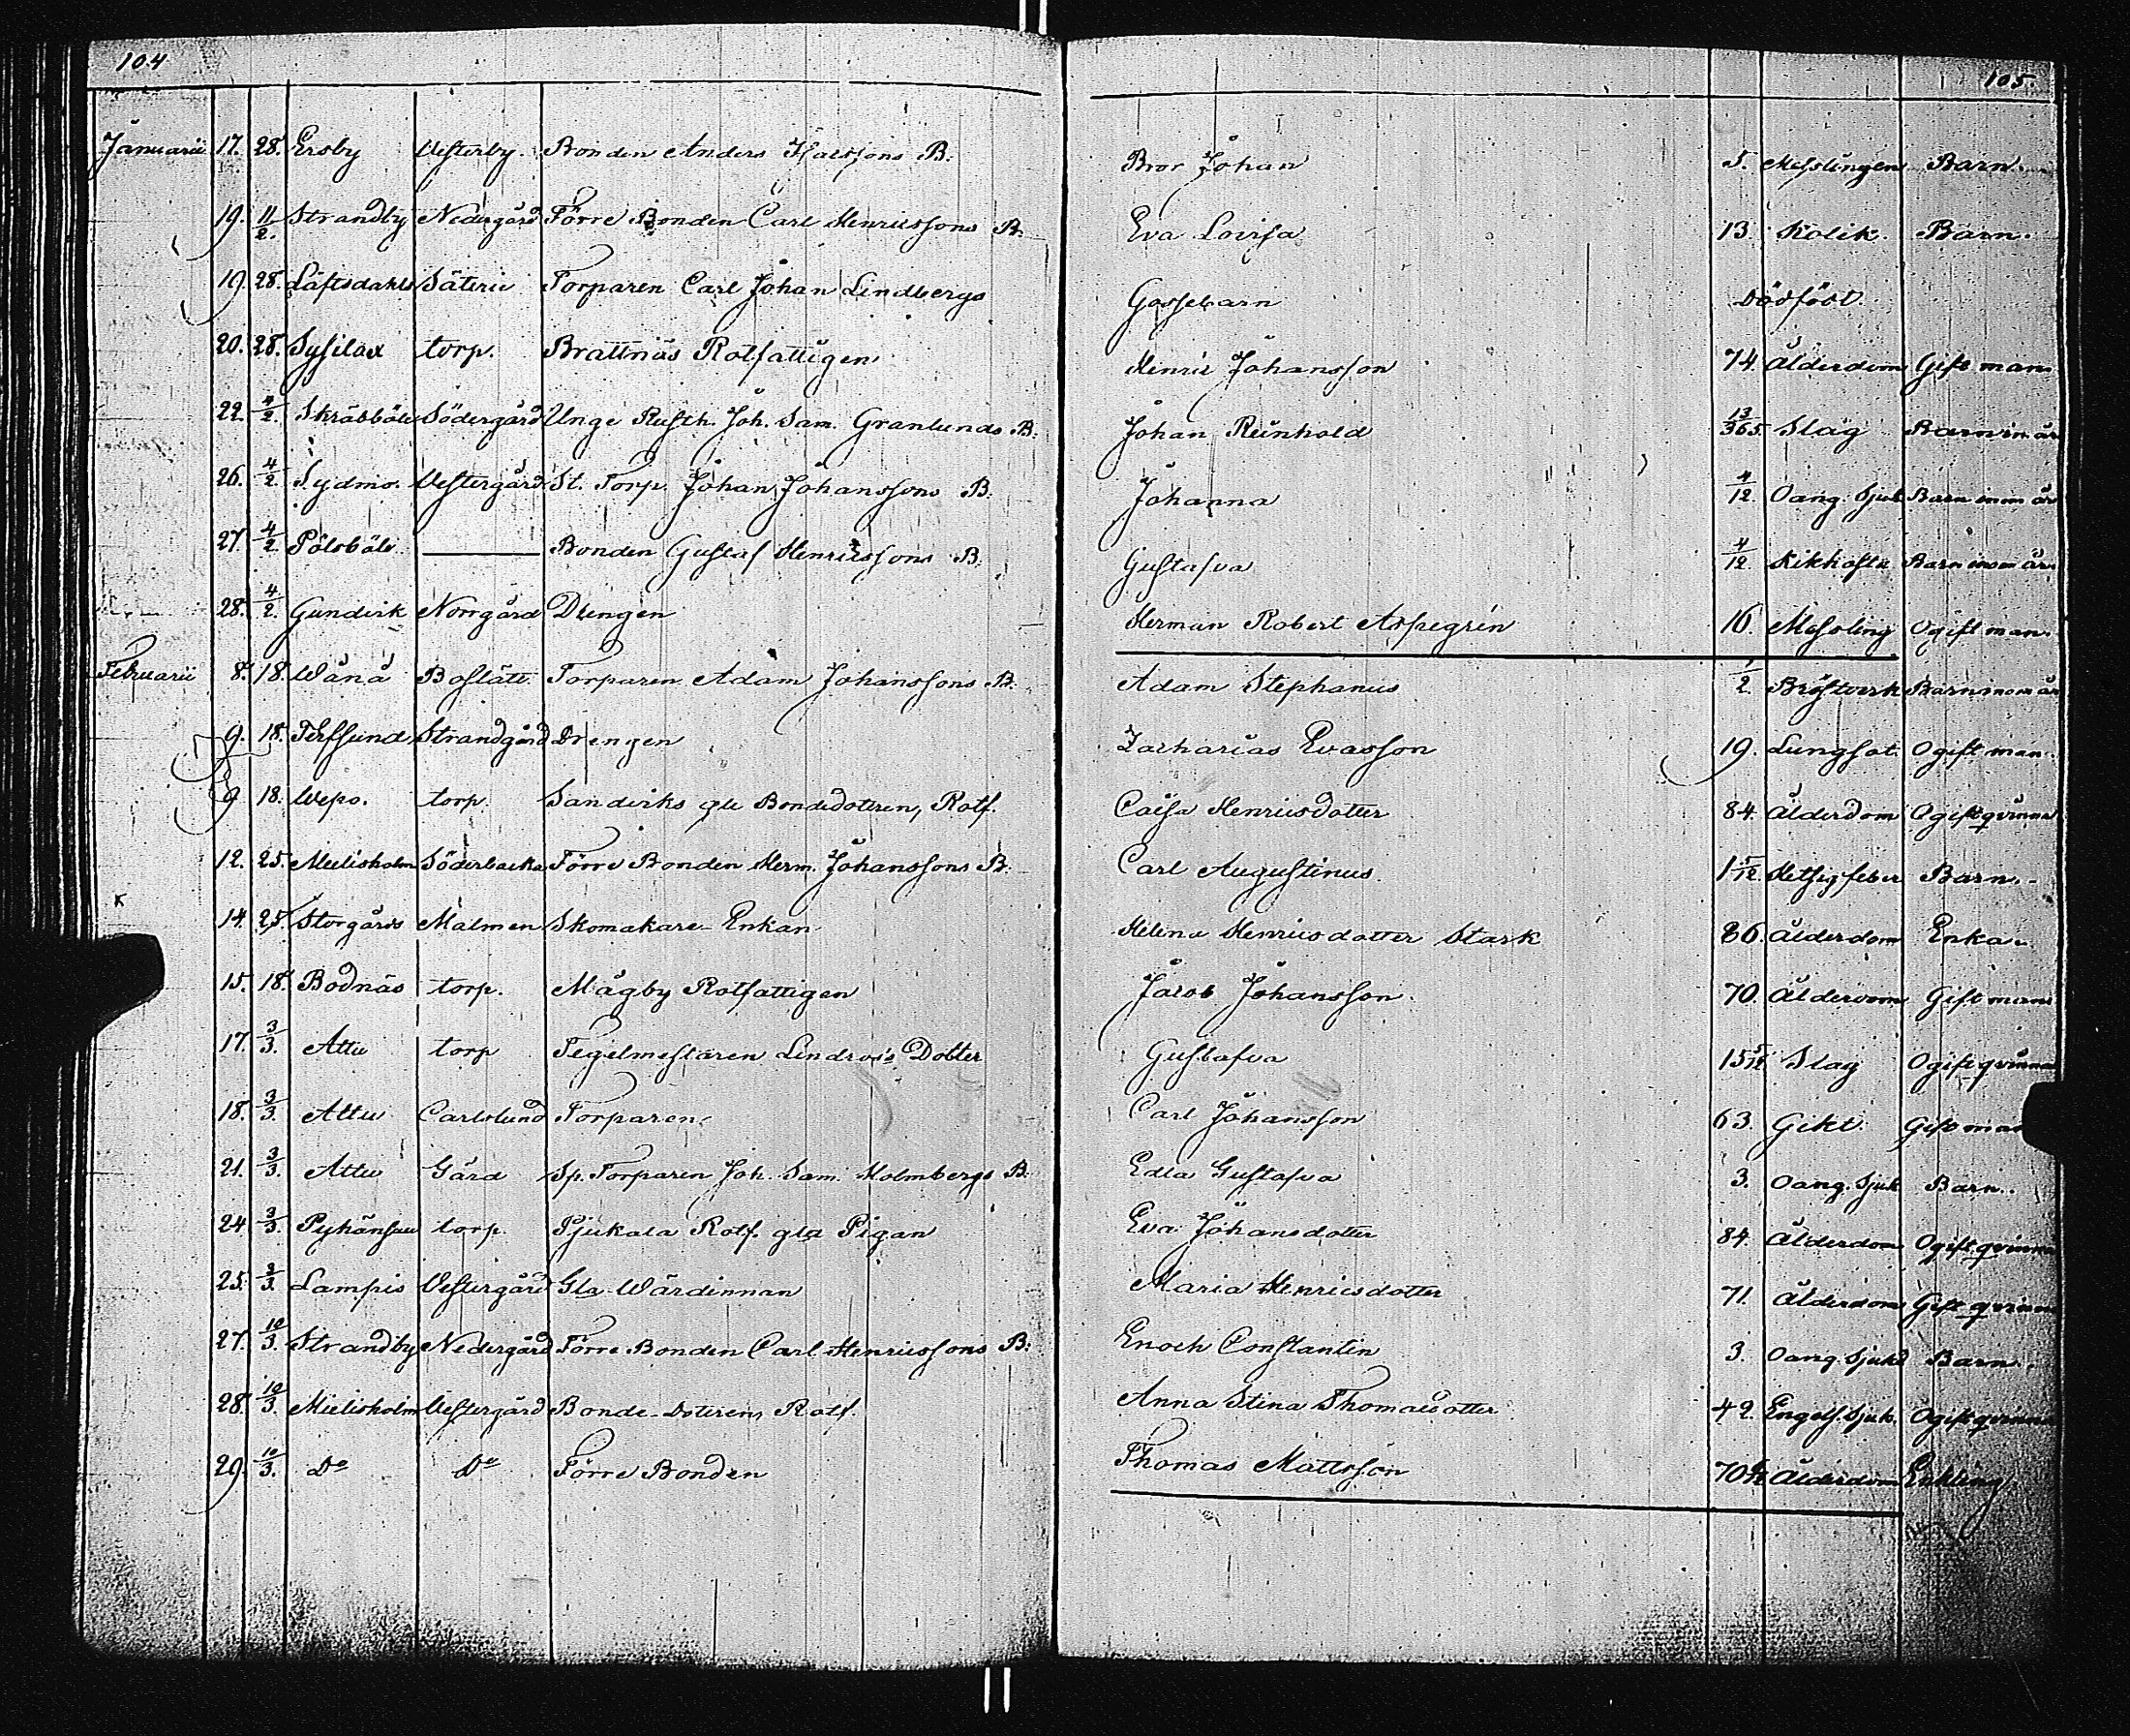 104
105.
Januarii 17. 28. Ersby Vesterby. Bonden Anders Isacssons B. Bror Johan 5. Messlingen Barn.
19. 11/2. Strandby Nedergård Förre Bonden Carl Henricssons B. Eva Lovisa 13. Kolik. Barn.
19. 28. Läftsdahls Säterie Torparen Carl Johan Lindbergs Gossebarn Dödfödt.
20. 28. Sysilax torp. Brattnäs Rotfattigen Henric Johansson 74. Ålderdom Gift man.
22. 4/2. Skräbböle Södergård Unge Rusth. Joh. Sam. Granlunds B. Johan Reinhold 13/365. Slag Barn in. år
26. 4/2. Sydmo. Vestergård St. Torp. Johan Johanssons B. Johanna 4/12 Oang. Sjuk Barn inom år
27. 4/2. Pölsböle — Bonden Gustaf Henricssons B. Gustafva 4/12. Kikhosta Barn inom år.
28. 4/2. Gundvik Norrgård Drengen Herman Robert Aspegrén 16. Messling Ogift man.
Februarii 8. 18. Wånå Boställe. Torparen Adam Johanssons B. Adam Stephanus 1/2. Bröstverk Barn inom år
9. 18. Terfsund Strandgård Drengen Zacharias Evasson 19. Lungsot. Ogift man.
9 18. Wepo. torp. Sandviks gle Bondedottren, Rotf. Caisa Henricsdotter 84. Ålderdom Ogift qvinna
12. 25. Mielisholm Söderbacka Förre Bonden Herm. Johanssons B. Carl Augustinus. 1 5/12. Hetsig feber Barn.
14. 25. Storgårds Malmen Skomakare-Enkan Helena Henricsdotter Stark 86. Ålderdom Enka.
15. 18. Bodnäs torp. Mågby Rotfattigen Jacob Johansson. 70. Ålderdom Gift man
17. 3/3. Attu torp Tegelmestaren Lindroos Dotter Gustafva 15 5/12 Slag Ogift qvinna
18. 3/3. Attu Carlslund Torparen Carl Johansson 63. Gikt. Gift man
21. 3/3. Attu Gård Sp. Torparen Joh. Sam. Holmbergs B. Edla Gustafva 3. Oang. Sjuk Barn.
24 3/3. Pyhänsuu torp. Pjukala Rotf. gla Pigan Eva Johansdotter 84. Ålderdom Ogift qvinna
25. 3/3. Lampis Vestergård Gla Wärdinnan Maria Henricsdotter 71. Ålderdom Gift qvinna
27. 10/3. Strandby Nedergård Förre Bonden Carl Henricssons B. Enoch Constantin 3. Oang. Sjukd Barn.
28. 10/3. Mielisholm Vestergård Bonde-Dotteren, Rotf. Anna Stina Thomasdotter 42. Engelf. Sjuk. Ogift qvinna
29. 10/3. Do Do Förre Bonden Thomas Mattsson 70 Ålderdom Enkling